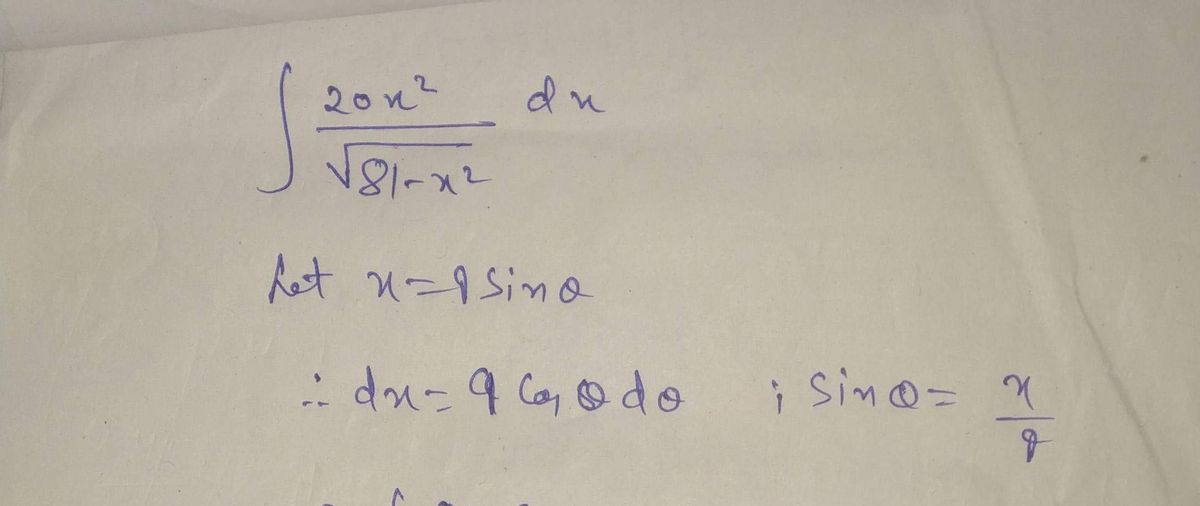 ∫ 20x² / √81-x² dx
Let x = 9 Sin θ
∴ dx = 9 Cos θ dθ ; Sin θ = x/9